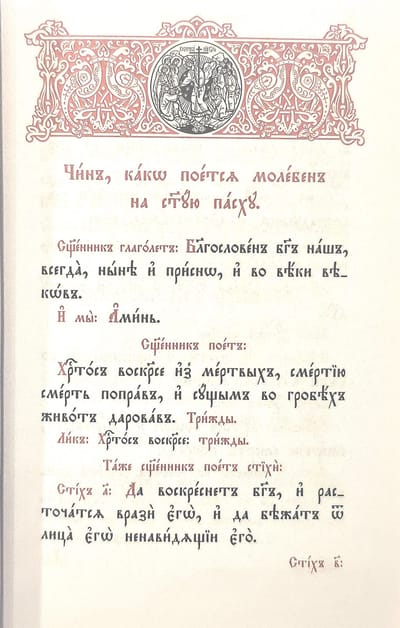 Чи́нъ, ка́кѡ пое́тсѧ моле́бенъ
на ст҃ꙋ́ю па́схꙋ.
Сщ҃е́нникъ глаго́летъ: Бл҃гослове́нъ бг҃ъ на́шъ,
всегда̀, ны́нѣ и҆ при́снѡ, и҆ во вѣ́ки вѣ-
кѡ́въ.
И҆ мы̀: А҆ми́нь.
Сщ҃е́нникъ пое́тъ:
Хрⷭ҇то́съ воскр҃се и҆з̾ ме́ртвыхъ, сме́ртїю
сме́рть попра́въ, и҆ сꙋ́щымъ во гробѣ́хъ
живо́тъ дарова́въ. Три́жды.
Ли́къ: Хрⷭ҇то́съ воскр҃се: три́жды.
Та́же сщ҃е́нникъ пое́тъ стїхѝ:
Сті́хъ а҃: Да воскре́снетъ бг҃ъ, и҆ рас-
точа́тсѧ вразѝ є҆гѡ̀, и҆ да бѣжа́тъ ѿ
лица̀ є҆гѡ̀ ненави́дѧщїи є҆го̀.
Сті́хъ в҃: